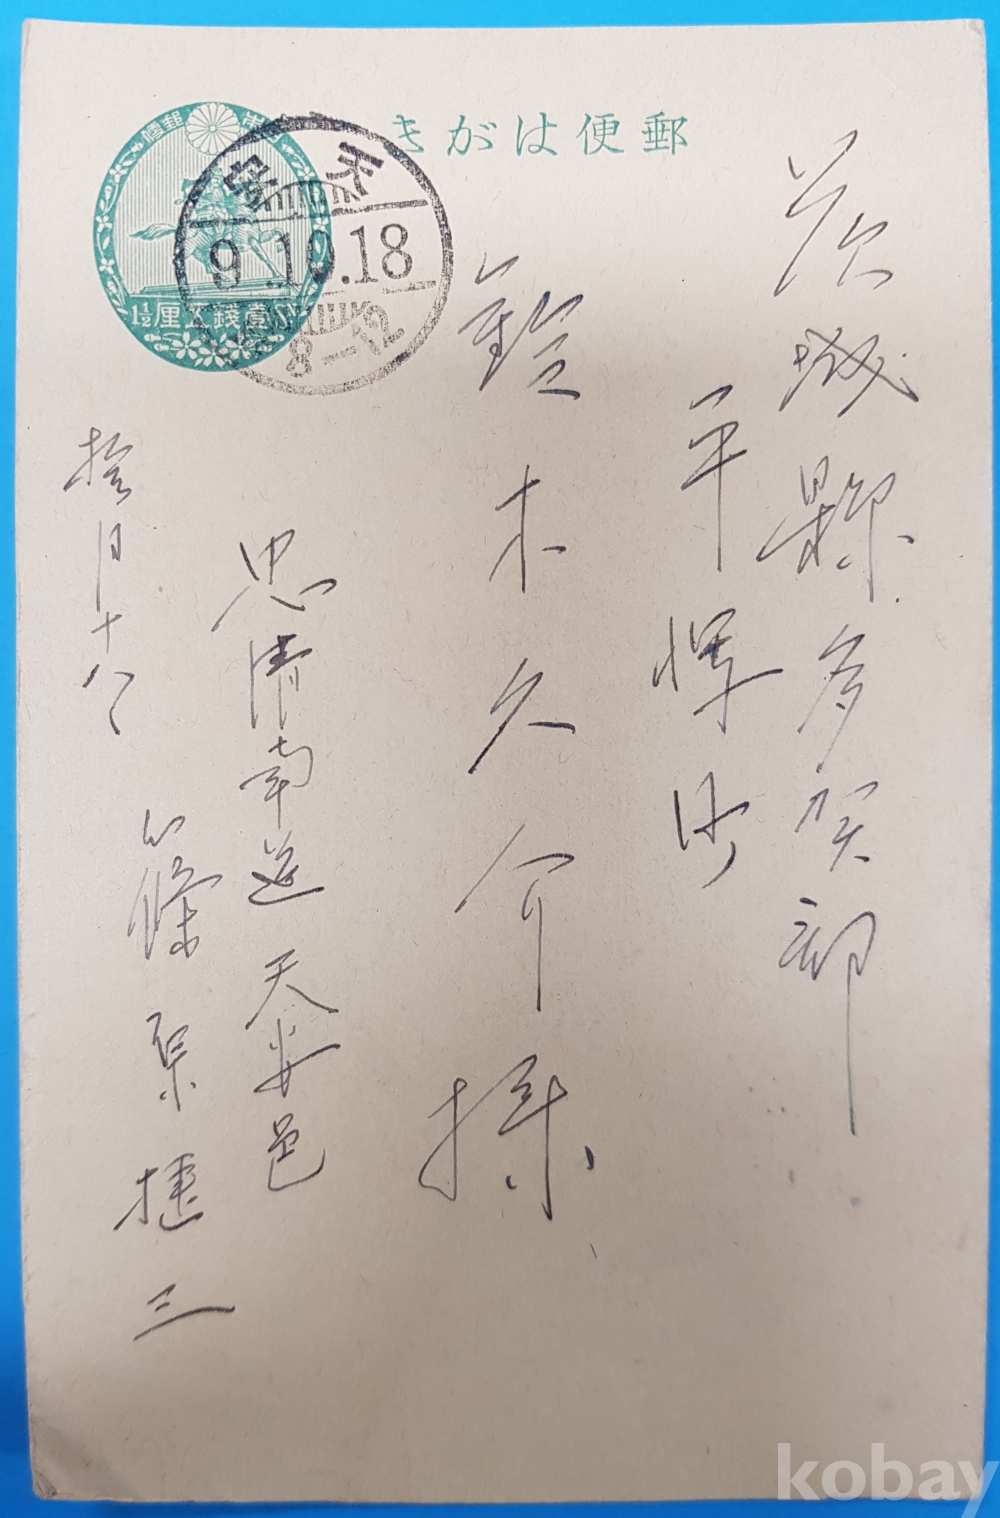 郵便はがき
壹錢五厘 1½
天安
9.10.18
8-12
茨城縣多賀郡
平潟町
鈴木久介様
忠清南道 天安邑
篠原捷三
拾月十八
kobay